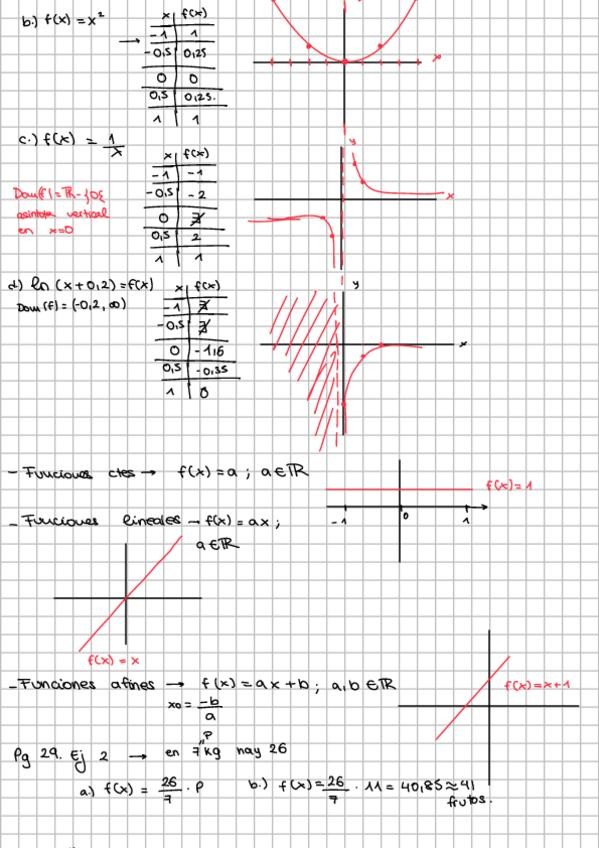 b.) f(x) = x²
→
x | f(x)
-1 | 1
-0,5 | 0,25
0 | 0
0,5 | 0,25.
1 | 1
x
c.) f(x) = 1/x
Dom(f) = ℝ - {0}
asíntota vertical
en x=0
x | f(x)
-1 | -1
-0,5 | -2
0 | ∄
0,5 | 2
1 | 1
y
x
d) ln (x+0,2) = f(x)
Dom (f) = (-0,2, ∞)
x | f(x)
-1 | ∄
-0,5 | ∄
0 | -1,6
0,5 | -0,35
1 | 0
y
x
- Funciones ctes → f(x) = a ; a ∈ ℝ
f(x) = 1
-1 0 1
- Funciones lineales → f(x) = ax ;
a ∈ ℝ
f(x) = x
- Funciones afines → f(x) = ax + b ; a, b ∈ ℝ
x0 = -b/a
f(x) = x+1
P
"
Pg 29. Ej 2 → en 7 kg hay 26
a.) f(x) = 26/7 · P b.) f(x) = 26/7 · 11 = 40,85 ≈ 41
frutos.